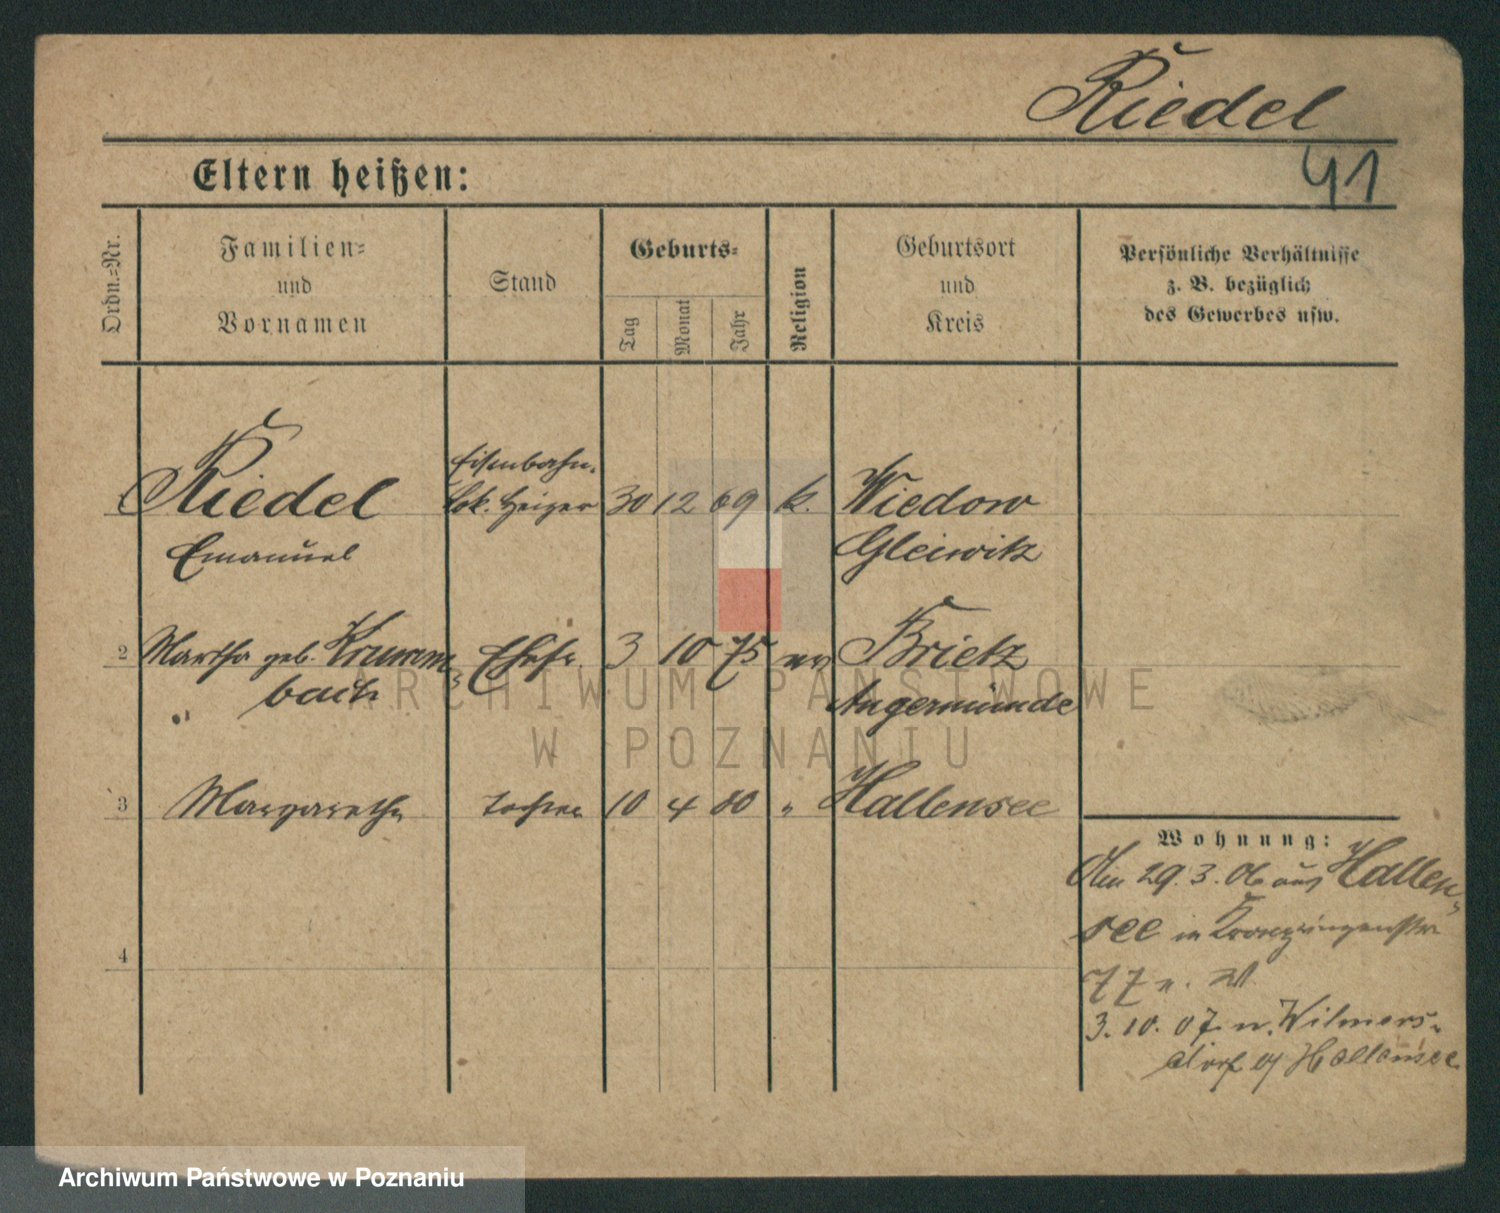 Riedel
41
Eltern heißen:
Ordn.=Nr.
Familien=
und
Vornamen
Stand
Geburts=
Tag
Monat
Jahr
Religion
Geburtsort
und
Kreis
Persönliche Verhältnisse
z. B. bezüglich
des Gewerbes usw.
Riedel
Emanuel
Eisenbahn.
Lok. Heizer
30 12 69 k.
Wiedow
Gleiwitz
2 Martha geb. Krumm=
bach
"
Ehefr. 3 10 75 ev
Brietz
Angermünde
3 Margarethe Tochter 10 4 00 " Hallensee
4
Wohnung:
Am 29. 3. 06 aus Hallen=
see in Kronprinzenstr
77 n. W
3. 10. 07 n. Wilmers=
dorf Hallensee
ARCHIWUM PAŃSTWOWE
W POZNANIU
Archiwum Państwowe w Poznaniu